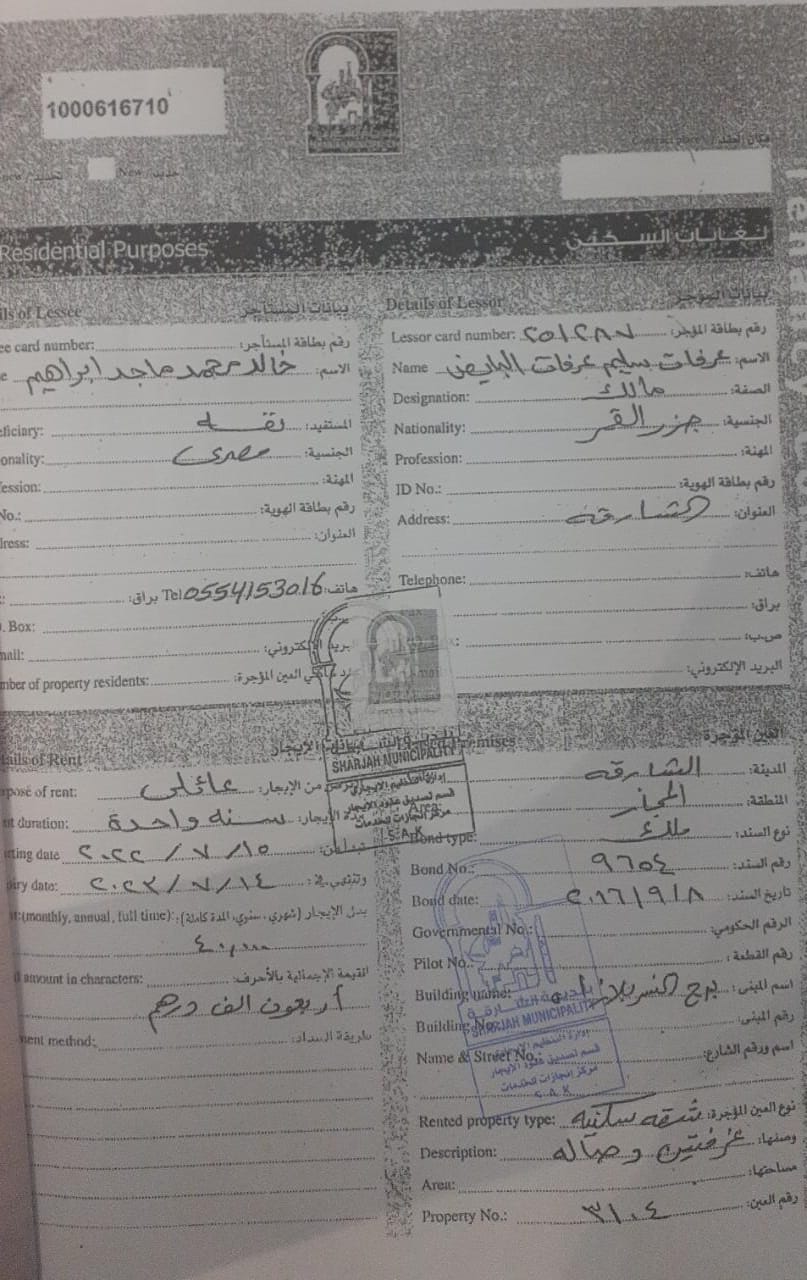 1000616710
New / جديد
مكان العقد
Residential Purposes
لغايات السكن
Details of Lessor
المؤجر
ils of Lessee
بيانات المستأجر
Lessor card number: ٢٥١٢٨٧ رقم بطاقة المؤجر:
Name عرفات سليم عرفات الاسم:
Designation: مالك الصفة:
Nationality: جزر القمر الجنسية:
Profession: المهنة:
ID No.: رقم بطاقة الهوية:
Address: الشارقه العنوان:
Telephone: هاتف:
براق:
ص.ب:
البريد الإلكتروني:
ee card number: رقم بطاقة المستأجر:
e خالد محمد ماجد ابراهيم الاسم:
eficiary: نفسه المستفيد:
onality: مصرى الجنسية:
ession: المهنة:
No.: رقم بطاقة الهوية:
ress: العنوان:
Tel 0554153016 براق: هاتف:
. Box:
mail: البريد الإلكتروني:
mber of property residents: العين المؤجرة:
SHARJAH MUNICIPALITY
إدارة التنظيم الإيجاري
قسم تصديق عقود الإيجار
مركز انجازات للخدمات
S.A.K
emises
العين المؤجرة
الشارقه المدينة:
Area: المجاز المنطقة:
Bond type: ملك نوع السند:
Bond No.: ٩٦٥٤ رقم السند:
Bond date: ٢٠١٦/٩/٨ تاريخ السند:
Governmental No.: الرقم الحكومي:
Pilot No.: رقم القطعة:
Building name: برج النسر اسم المبنى:
Building No.: رقم المبنى:
Name & Street No.: اسم ورقم الشارع:
Rented property type: شقه سكنيه نوع العين المؤجرة:
Description: غرفتين وصاله وصفها:
Area: مساحتها:
Property No.: ٣١٠٤ رقم العين:
بلدية الشارقة
SHARJAH MUNICIPALITY
إدارة التنظيم الإيجاري
قسم تصديق عقود الإيجار
مركز انجازات للخدمات
S.A.K
ails of Rent
الإيجار
pose of rent: عائلى من الإيجار:
nt duration: سنه واحدة الإيجار:
rting date ٢٠٢٢/٧/١٥
iry date: ٢٠٢٣/٧/١٤ وتنتهي في:
t:(monthly, annual, full time): بدل الإيجار (شهري، سنوي، المدة كاملة):
٤٠,٠٠٠
l amount in characters: القيمة الإجمالية بالأحرف:
أربعون الف درهم
ment method: طريقة السداد: